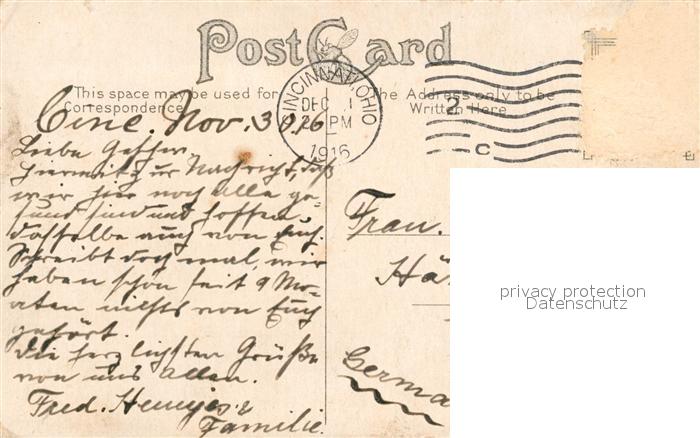 Post Card
This space may be used for Correspondence
The Address only to be Written Here
CINCINNATI, OHIO
DEC 1
PM
1916
2
C
Cinc. Nov. 30. 16
Liebe
Hiermit zur Nachricht, daß
wir hier noch alle ge-
sund sind und hoffen
dasselbe auch von Euch.
Schreibt doch mal, wir
haben schon seit 9 Mo-
naten nichts von Euch
gehört.
Die herzlichsten Grüße
von uns allen.
Fred.
Familie.
Frau.
Hä
Germa
privacy protection
Datenschutz